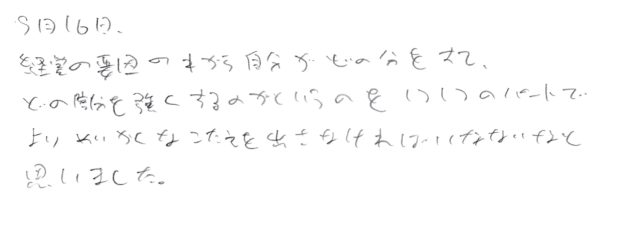 9月16日、
経営の要因の中から自分がどの分をさて、
どの部分を強くするのかというのを1つ1つのパートで
よりめいかくなこたえを出さなければいけないなと
思いました。